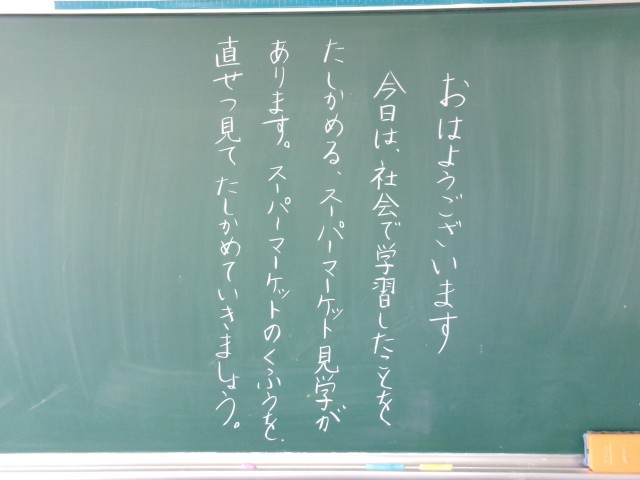 おはようございます
今日は、社会で学習したことを
たしかめる、スーパーマーケット見学が
あります。スーパーマーケットのくふうを、
直せつ見てたしかめていきましょう。